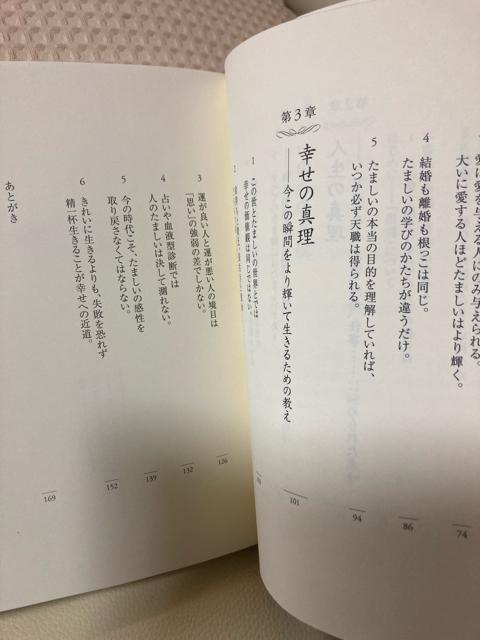 愛に愛を与える人にのみ与えられる。
大いに愛する人ほどたましいはより輝く。
74
4
結婚も離婚も根っこは同じ。
たましいの学びのかたちが違うだけ。
86
5
たましいの本当の目的を理解していれば、
いつか必ず天職は得られる。
94
第3章
幸せの真理
——今この瞬間をより輝いて生きるための教え
101
1
この世とたましいの世界とでは
幸せの価値観は同じではない。
2
3
運が良い人と運が悪い人の境目は
「思い」の強弱の差でしかない。
126
4
占いや血液型診断では
人のたましいは決して測れない。
132
5
今の時代こそ、たましいの感性を
取り戻さなくてはならない。
139
6
きれいに生きるよりも、失敗を恐れず
精一杯生きることが幸せへの近道。
152
あとがき
169